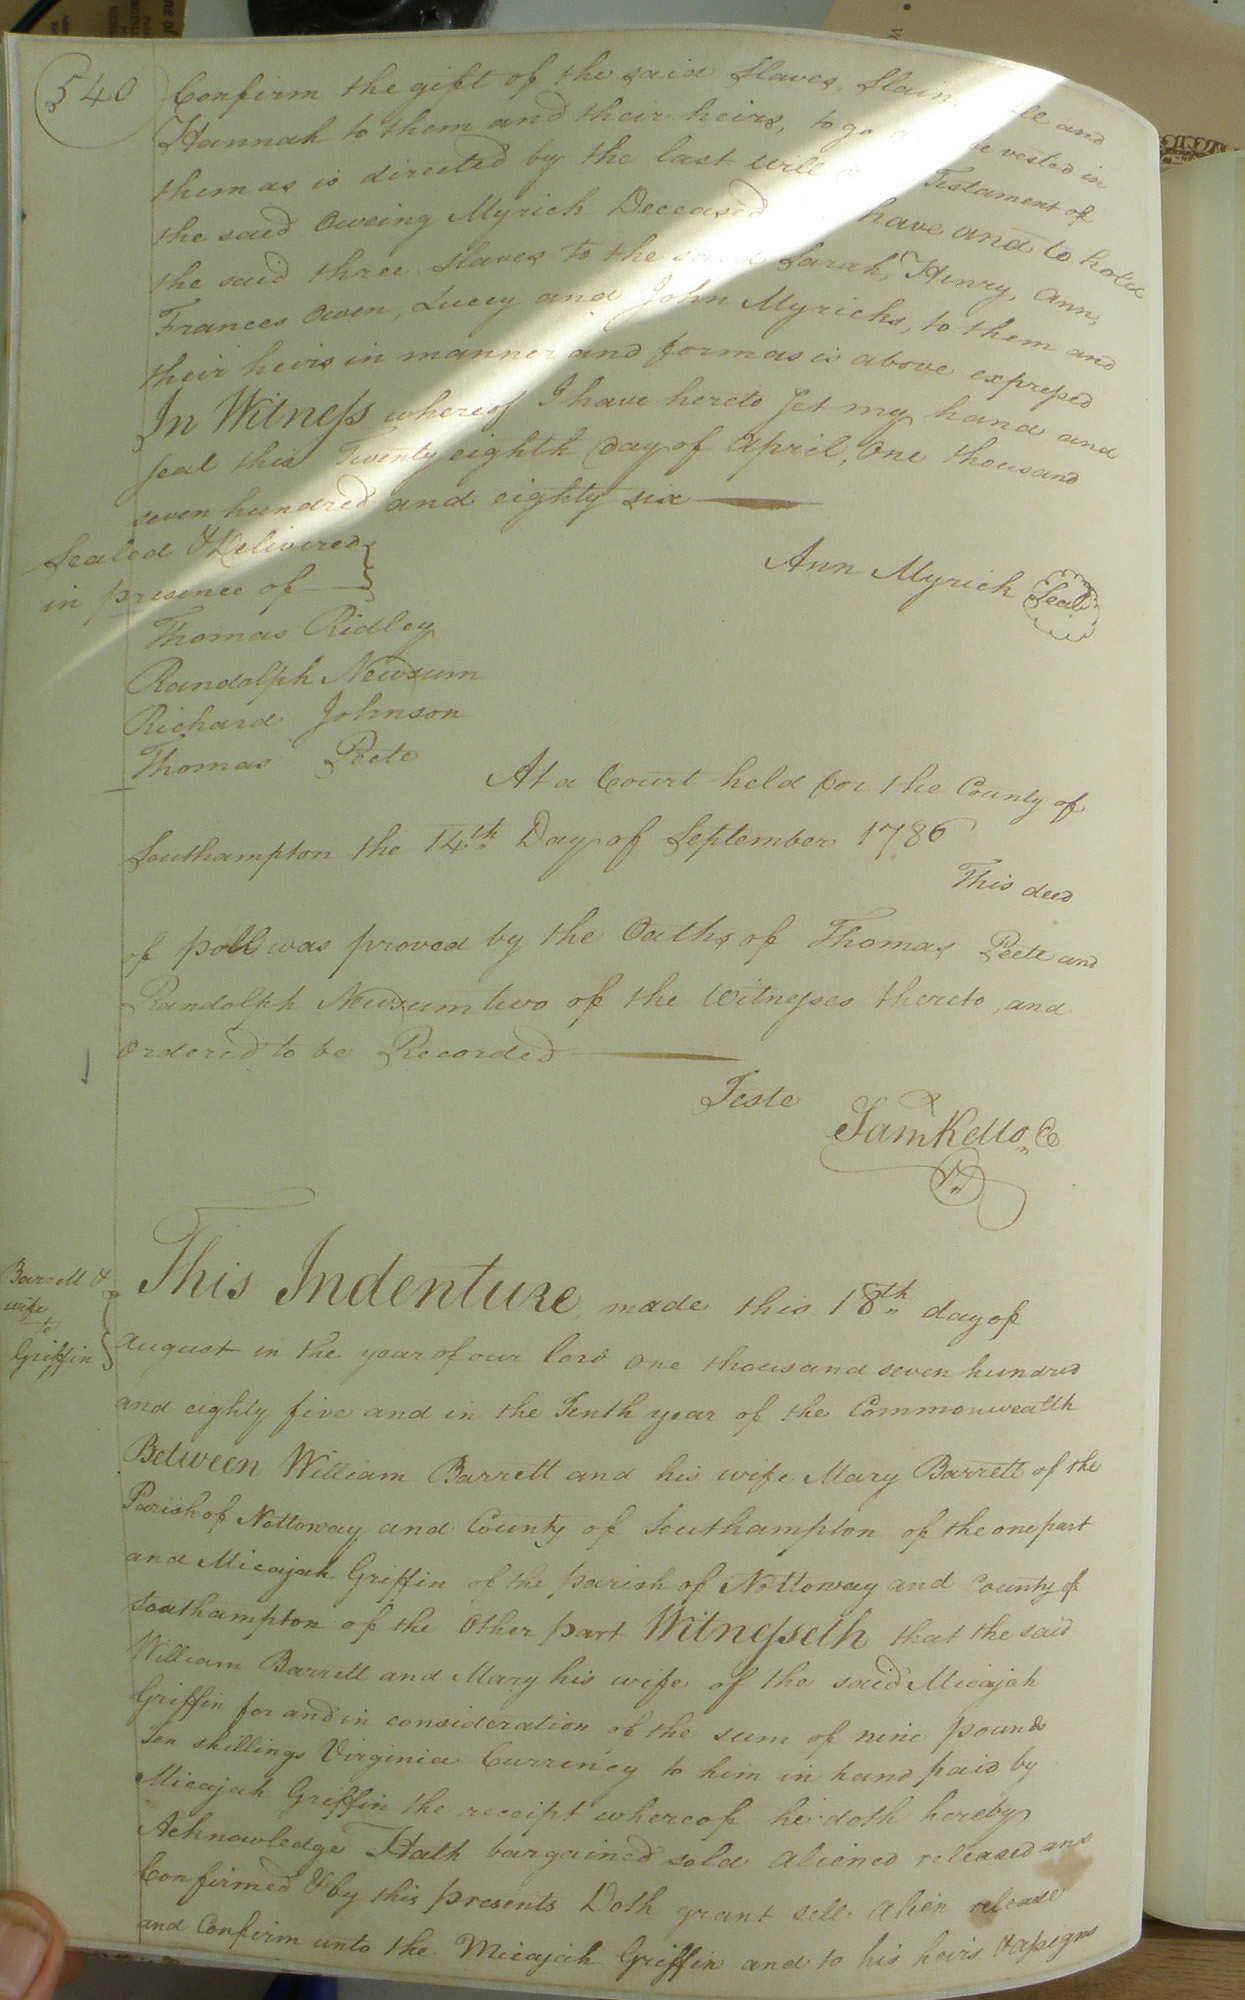 540
Confirm the gift of the said Slaves, and
Hannah to them and their heirs, to go be vested in
them as is directed by the last will Testament of
the said Oweing Myrick Deceased have and to hold
the said three Slaves to the said Sarah, Henry, Ann,
Frances Owen, Lucey and John Myricks, to them and
their heirs in manner and form as is above expressed
In Witness whereof I have hereto set my hand and
seal this Twenty eighth Day of April, One thousand
seven hundred and eighty six
Sealed & Delivered
in presence of
Ann Myrick Seal
Thomas Ridley
Randolph Newsum
Richard Johnson
Thomas Peete
At a Court held for the County of
Southampton the 14th Day of September 1786
This deed
of poll was proved by the Oaths of Thomas Peete and
Randolph Newsum two of the Witnesses thereto, and
Ordered to be Recorded
Teste
Sam Kello Co
Barrett &
wife
to
Griffin
This Indenture, made this 18th day of
August in the year of our lord one thousand seven hundred
and eighty five and in the Tenth year of the Commonwealth
Between William Barrett and his wife Mary Barrett of the
Parish of Nottoway and County of Southampton of the one part
and Micajah Griffin of the parish of Nottoway and County of
Southampton of the Other part Witnesseth that the said
William Barrett and Mary his wife of the said Micajah
Griffin for and in consideration of the sum of nine pounds
Ten shillings Virginia Currency to him in hand paid by
Micajah Griffin the receipt whereof he doth hereby
Acknowledge Hath bargained sold aliened released and
Confirmed & by this presents Doth grant sell alien release
and Confirm unto the Micajah Griffin and to his heirs & assigns